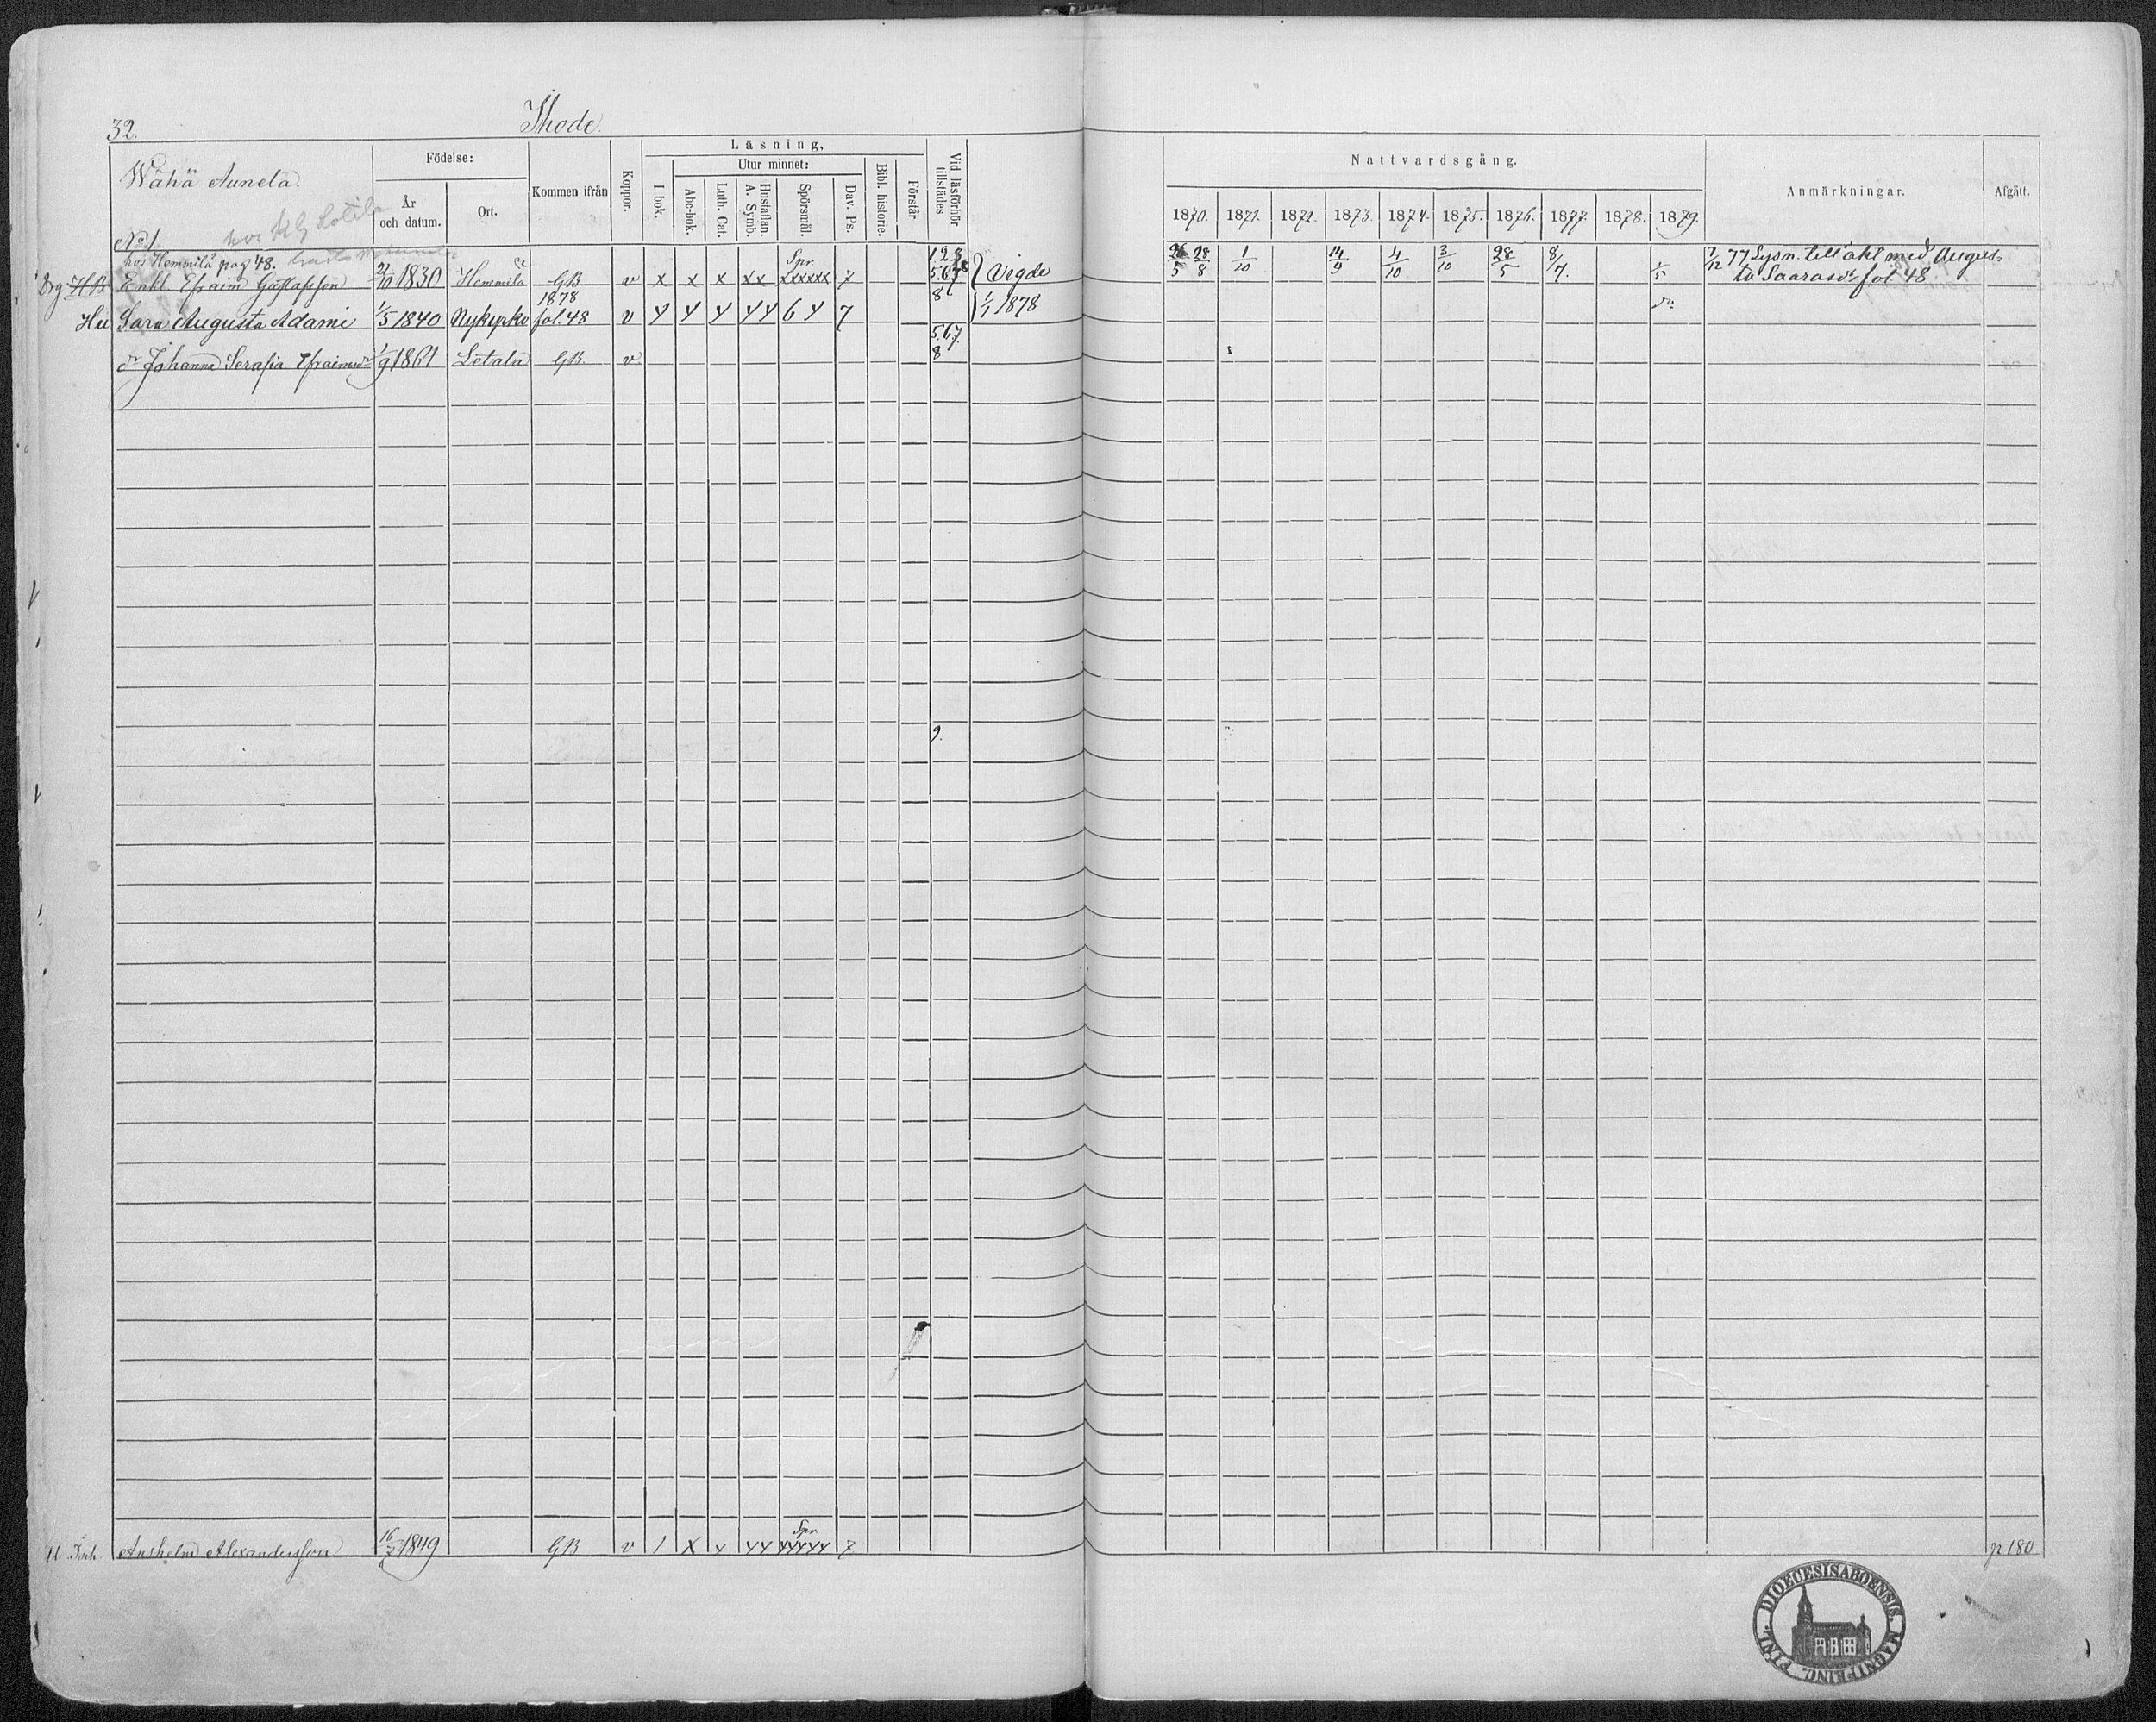 32.
Ihode.
Wähä Aunela.
No 1
Födelse:
År och datum.
Ort.
Kommen ifrån
Koppor.
Läsning,
I bok.
Utur minnet:
Abc-bok.
Luth. Cat.
Hustaflan. A. Symb.
Spörsmål.
Dav. Ps.
Bibl. historie.
Förstår
Vid läsförhör tillstädes
Nattvardsgång.
1870. 1871. 1872. 1873. 1874. 1875. 1876. 1877. 1878. 1879.
Anmärkningar.
Afgått.
hos Hemmilä pag 48.
Enkl. Efraim Gustafsson 21/10 1830 Hemmilä GB v x x x xx Spr. xxxxx 7 Vigde 28/8 1/10 14/9 4/10 3/10 28/5 8/7 1/5 7/12 77 Lysn. till äkt med Augus-
ta Saarasdr fol 48
Hu Sara Augusta Adami 1/5 1840 Nykyrko 1878 fol. 48 v 6 4 7 8 1/1 1878 do
dr Johanna Serafia Efraimsdr 1/9 1861 Letala GB. v 5.6.7. 8
9.
Anshelm Alexandersson 1849 GB v 1 x Spr. 7 p 180
DIOECESIS ABOENSIS. MAGNI PRINC. FINL.